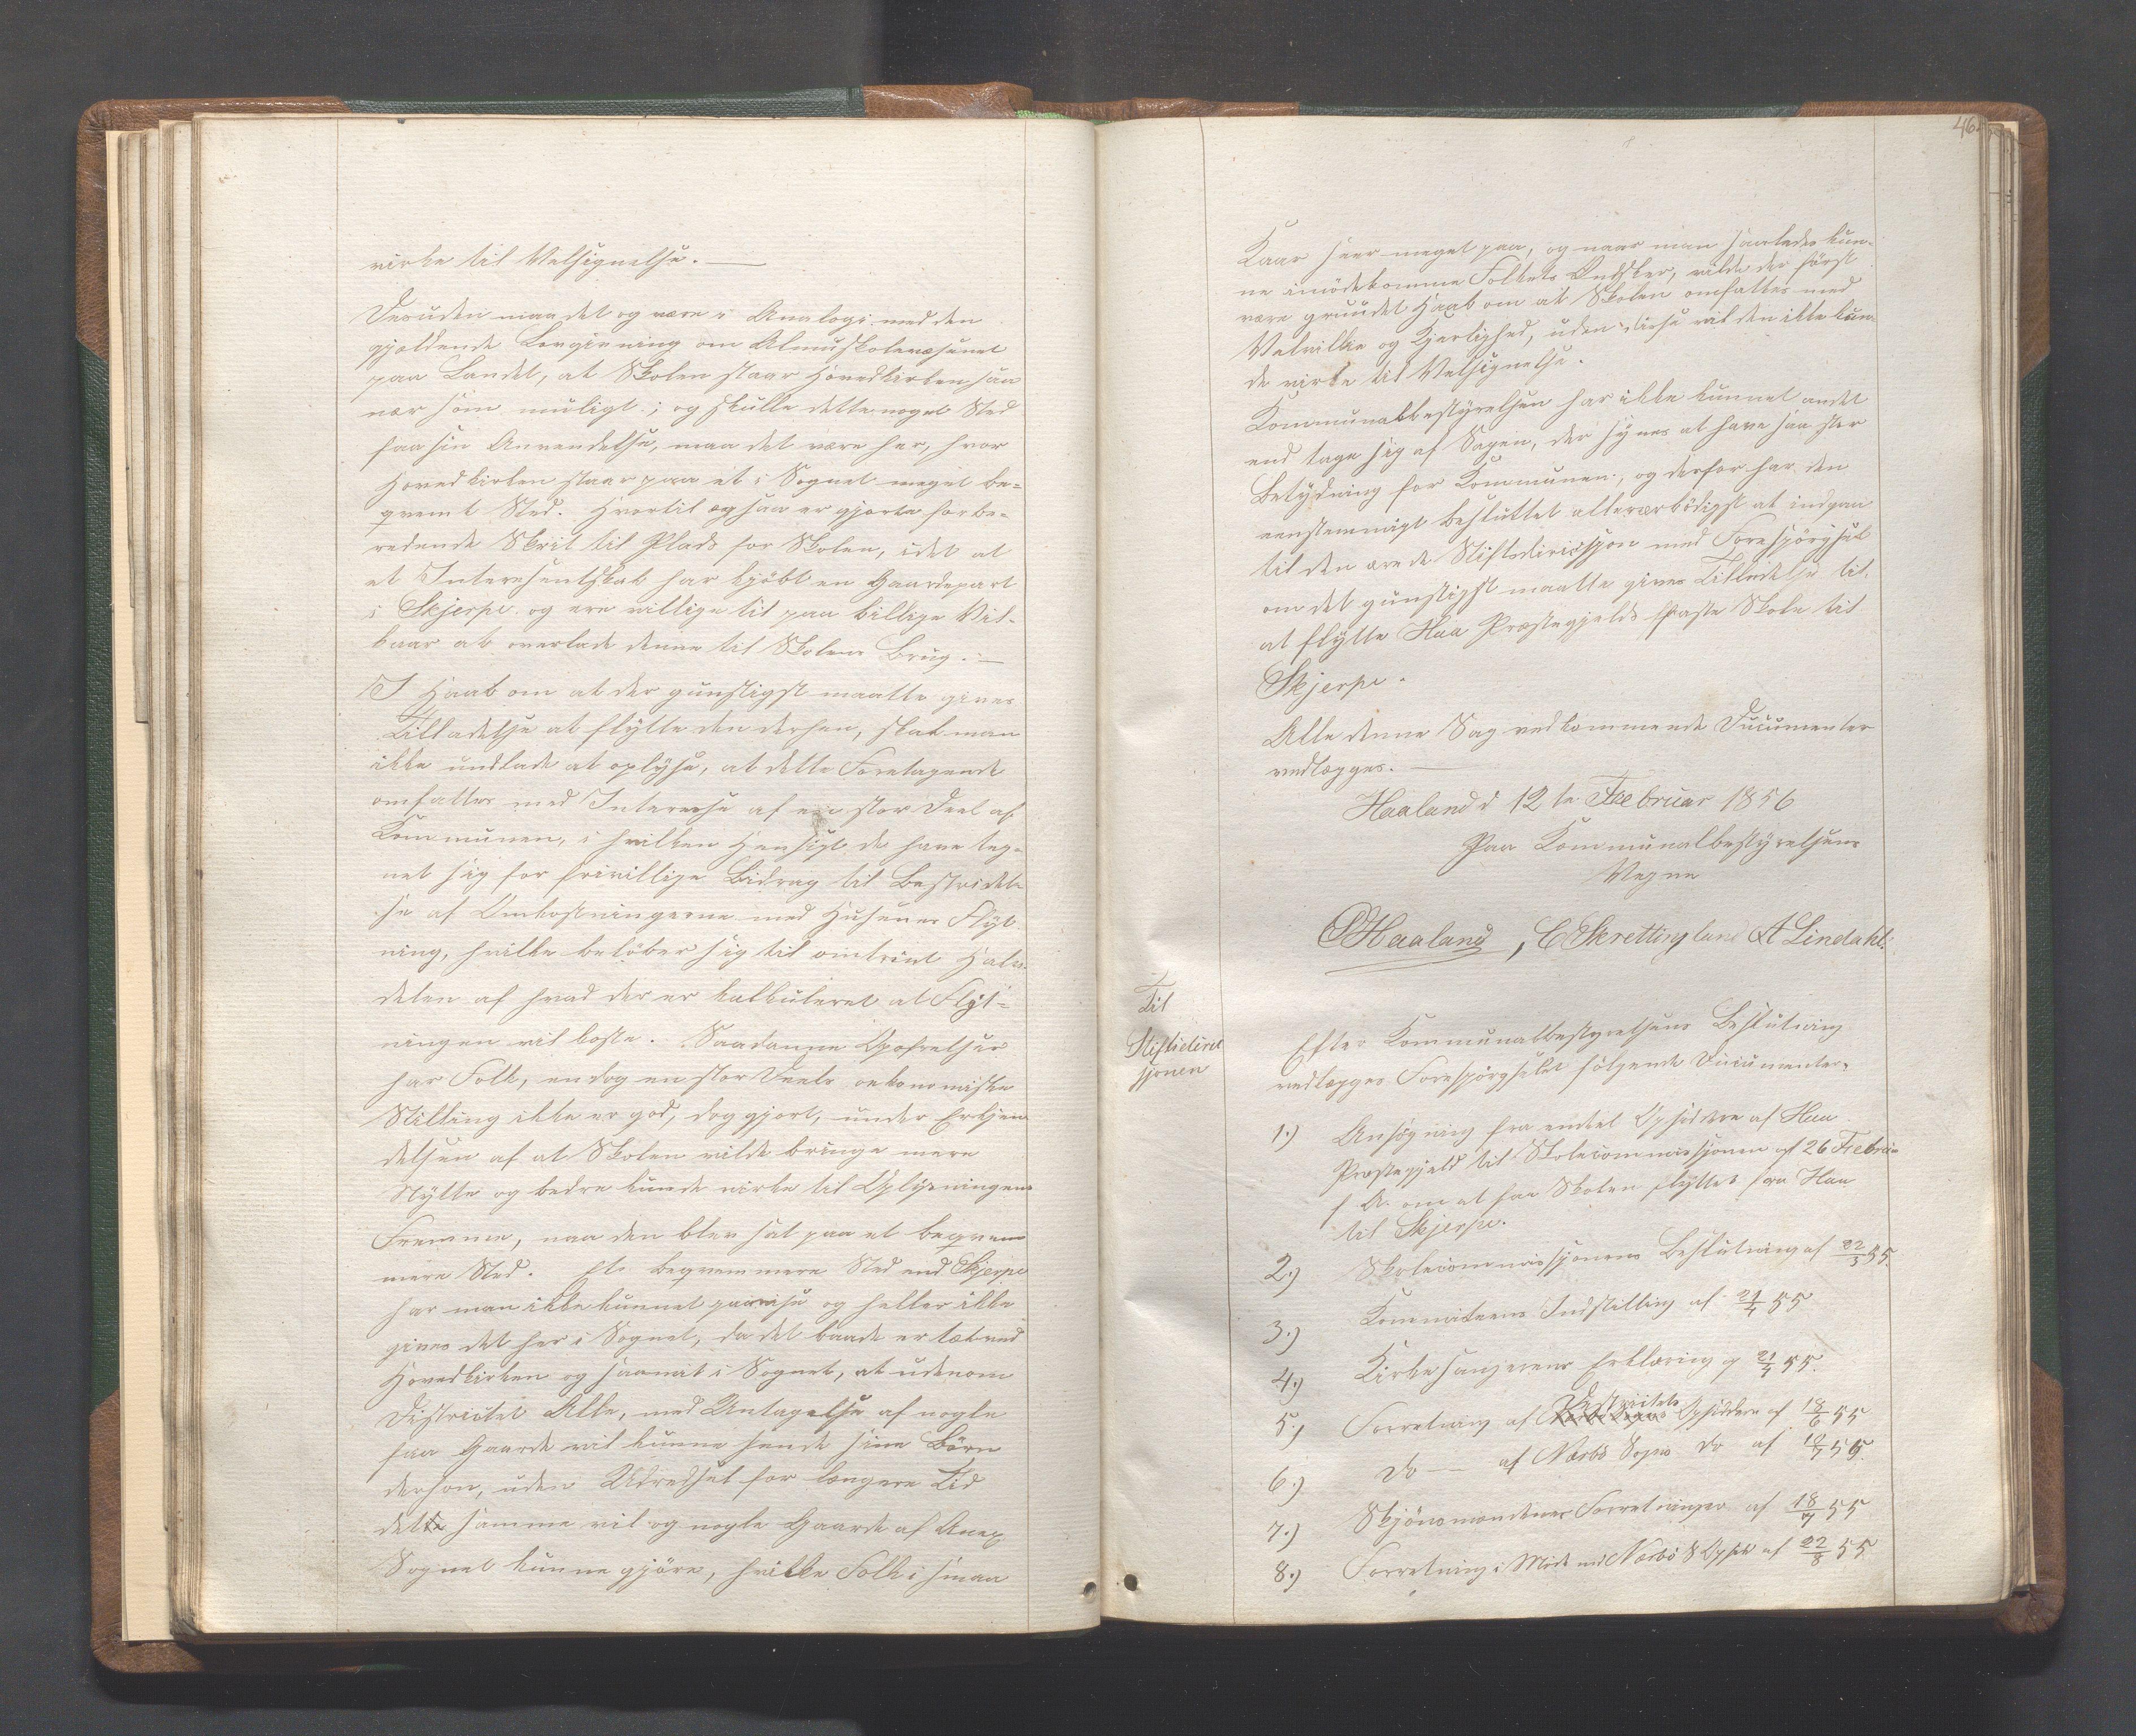 virke til Velsignelse. —
Desuden maa det og være i Analogi med den
gjældende Lovgivning om Almuskolevæsenet
paa Landet, at Skolen staar Hovedkirken saa
nær som muligt; og skulle dette noget Sted
faa sin Anvendelse, maa det være her, hvor
Hovedkirken staar paa et i Sognet meget be-
qvemt Sted. Hvortil ogsaa er gjorte forbe-
redende Skrit til Plads for Skolen, idet at
et Interesentskab har kjöbt en Gaardepart
i Skjerpe og ere villige til paa billige Vil-
kaar at overlade denne til Skolens Brug. —
I Haab om at der gunstigst maatte gives
Tilladelse at flytte den derhen, skal man
ikke undlade at oplyse, at dette Foretagende
omfattes med Interesse af en stor Deel af
Kommunen, i hvilken Hensigt de have teg-
net sig for frivillige Bidrag til Bestridel-
se af Omkostningerne med Husenes Flyt
ning, hvilke belöber sig til omtrint Halv-
delen af hvad der er kalkuleret at Flyt-
ningen vil koste. Saadanne Opofrelser
har Folk, endog en stor Deels oekonomiske
Stilling ikke er god, dog gjort, under Erkjen
delsen af at Skolen vilde bringe mere
Nytte og bedre kunde virke til Oplysningens
Fremme, naa den blev sat paa et beqvem
mere Sted. Et beqvemmere Sted end Skjerpe
har man ikke kunnet paavise og heller ikke
gives det her i Sognet, da det baade er tæt ved
Hovedkirken og saavit i Sognet, at udenom
Districtet Alle, med Untagelse af nogle
faa Gaarde vil kunne sende sine Börn
derhen, uden Udredsel for længere Tid
det samme vil og nogle Gaarde af Anex
Sognet kunne gjöre, hvilke Folk i smaa
46
Kaar seer meget paa, og naar man saaledes kun-
ne imödekomme Folkets Öndsker, vilde der först
være grundet Haab om at Skolen omfattes med
Velvillie og Kjerlighed, uden disse vil den ikke kun-
de virke til Velsignelse.
Kommunalbestyrelsen har ikke kunnet andet
end tage sig af Sagen, der synes at have saa stor
Betydning for Kommunen, og derfor har den
eenstemmigt besluttet allerærbödigst at indgaa
til den ærede Stiftsdirecsjon med Forespörgsel
om det gunstigst maatte gives Tilladelse til
at flytte Haa Præstegjelds faste Skole til
Skjerpe.
Alle denne Sag vedkommende Documenter
vedlægges. —
Haaland d 12te Februar 1856
Paa Kommunalbestyrelsens
Vegne
Haaland, C Skrettingland A Lindahl.
Til
Stiftsdirek
sjonen
Efter Kommunalbestyrelsens Beslutning
vedlægges Forespörgselet fölgende Documenter.
1.) Ansögning fra endel Opsiddere af Haa
Præstegjeld til Skolecommissjonen af 26 Februar
f A. om at faa Skolen flyttet fra Haa
til Skjerpe.
2.) Skolecommissjonens Beslutning af 22/3 55.
3.) Kommiteens Indstilling af 21/4 55
4.) Kirkesangerens Erklæring af 21/4 55.
5.) Forretning af Districtets Opsiddere af 18/6 55
6.) Do — af Nærbö Sogns Do af 18/7 55.
7.) Skjönsmændenes Forretninger af 18/7 55
8.) Forretning i Möde med Nærbö S Opsid af 22/8 55